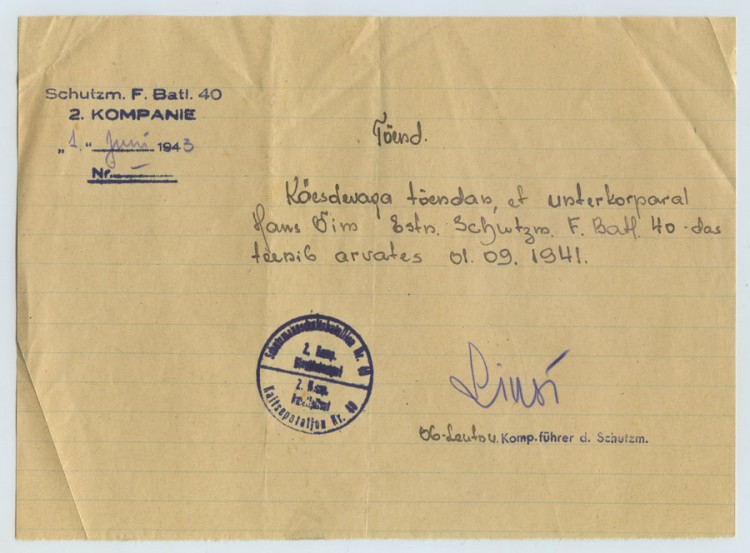 Schutzm. F. Batl. 40
2. KOMPANIE
"1." Juni 1943
Nr. —
Tõend.
Käesdevaga tõendan, et unterkorparal
Hans Õim Estn. Schutzm. F. Batl. 40-das
teenib arvates 01.09.1941.
Schutzmannschaftsbataillon Nr. 40
2. Komp.
Dienstsiegel
2. Komp.
Kaitsepataljon Nr. 40
Ob-Leutn u. Komp.führer d. Schutzm.